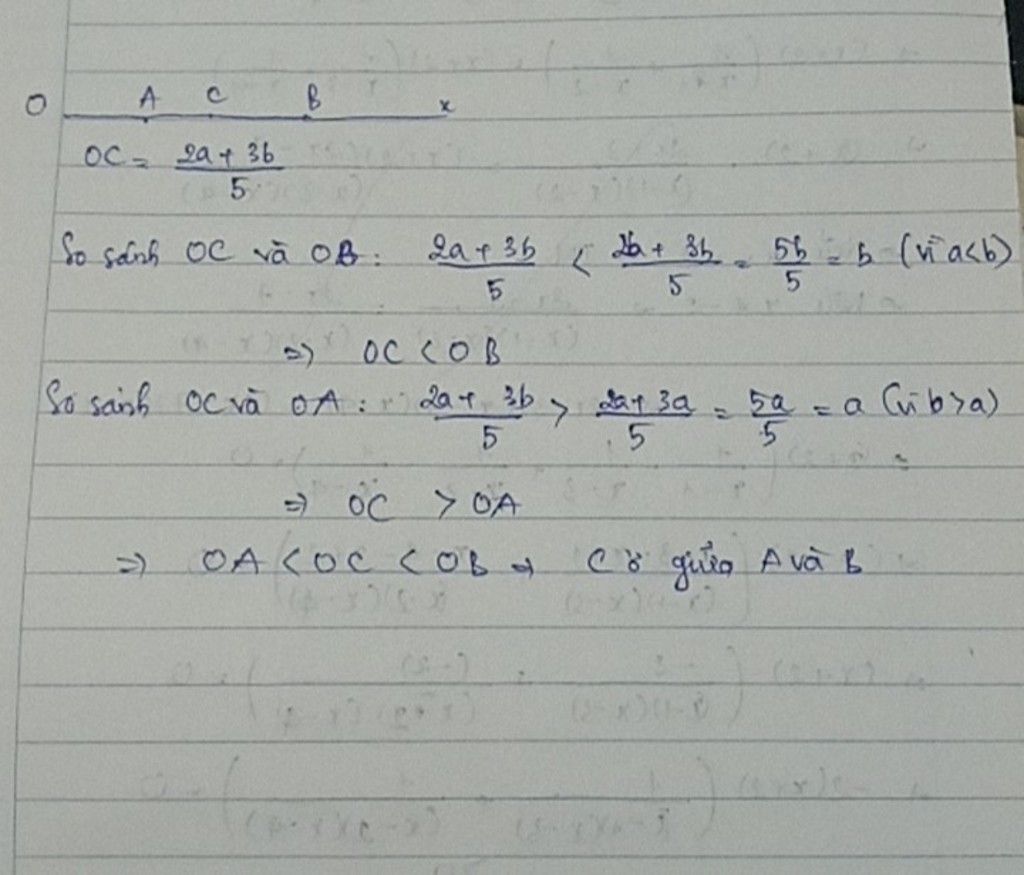 O A C B x
OC = (2a + 3b)/5
So sánh OC và OB : (2a + 3b)/5 < (2b + 3b)/5 = 5b/5 = b (vì a<b)
=> OC < OB
So sánh OC và OA : (2a + 3b)/5 > (2a + 3a)/5 = 5a/5 = a (vì b>a)
=> OC > OA
=> OA < OC < OB => C ở giữa A và B